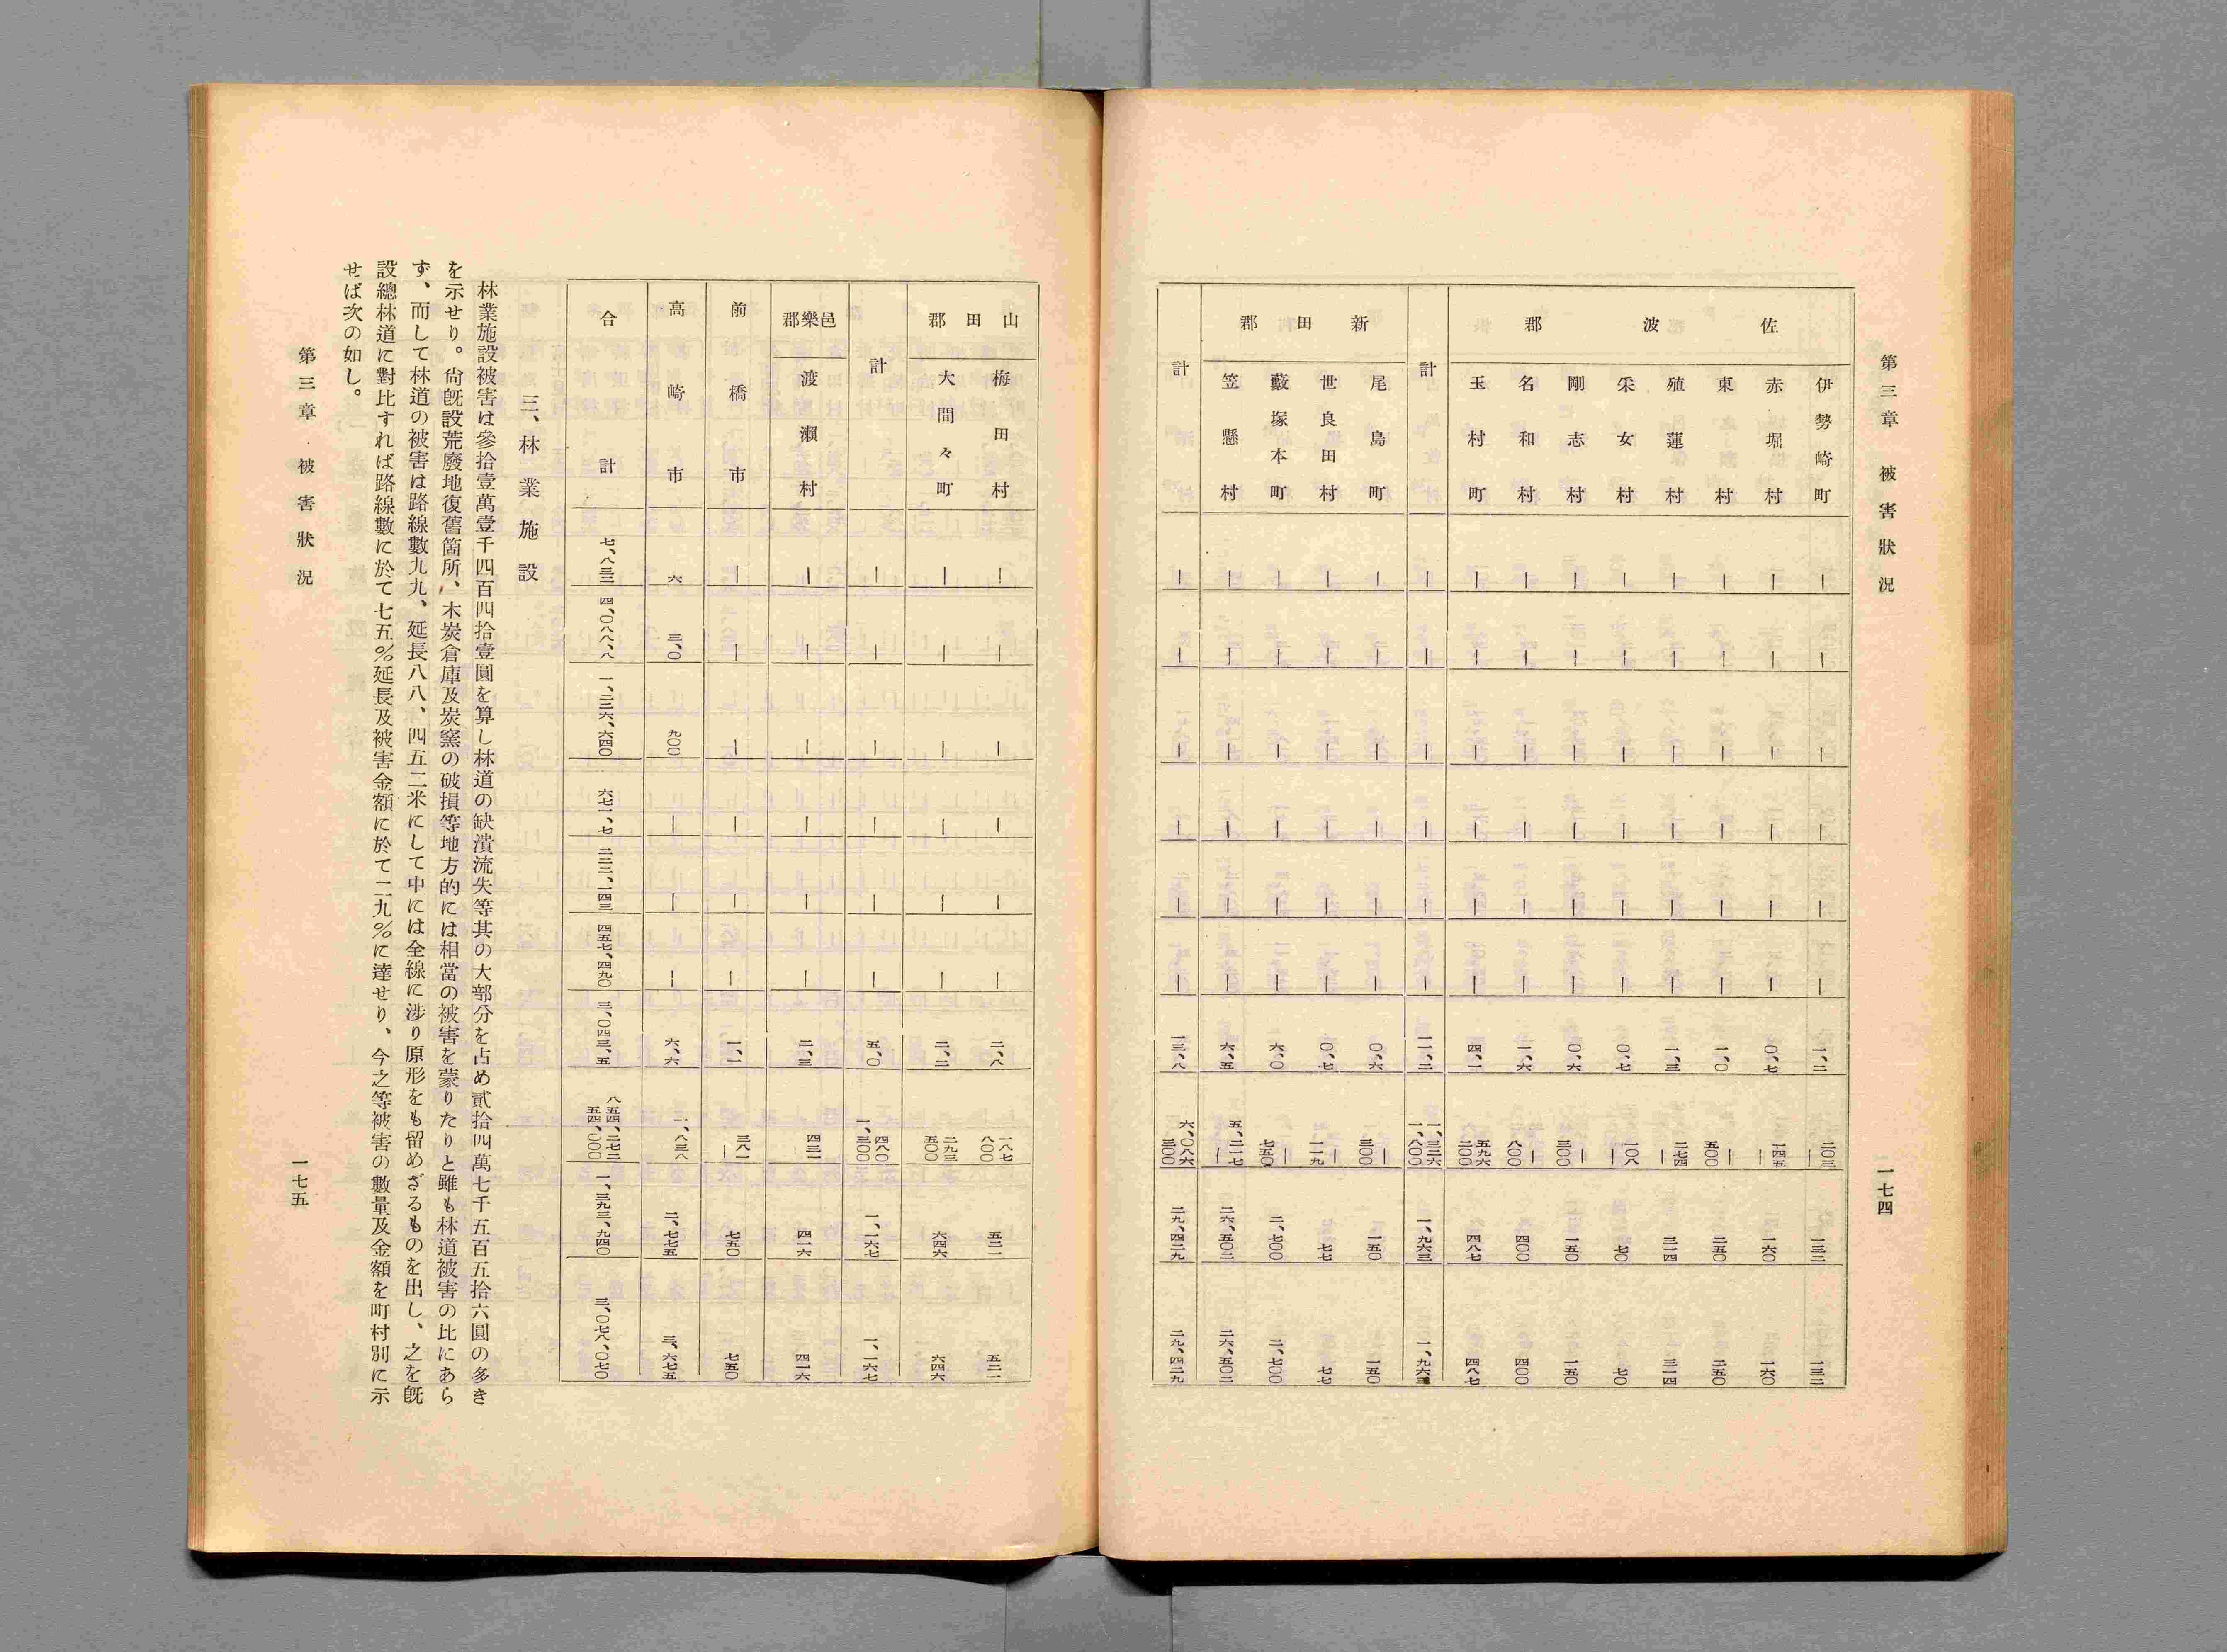 第三章 被害狀況
一七四
佐波郡
伊勢崎町 | | | | | | 一、二 二〇三 | 一三二 一三二
赤堀村 | | | | | | 〇、七 一四五 | 一六〇 一六〇
東村 | | | | | | 一、〇 | 五〇〇 二五〇 二五〇
殖蓮村 | | | | | | 一、三 二七四 | 三一四 三一四
采女村 | | | | | | 〇、七 一〇八 | 七〇 七〇
剛志村 | | | | | | 〇、六 | 三〇〇 一五〇 一五〇
名和村 | | | | | | 一、六 | 八〇〇 四〇〇 四〇〇
玉村町 | | | | | | 四、一 五九六 二〇〇 四八七 四八七
計 | | | | | | 一一、二 一、三二六 一、八〇〇 一、九六三 一、九六三
新田郡
尾島町 | | | | | | 〇、六 | 三〇〇 一五〇 一五〇
世良田村 | | | | | | 〇、七 | 一一九 七七 七七
藪塚本町 | | | | | | 六、〇 | 七五〇 二、七〇〇 二、七〇〇
笠懸村 | | | | | | 六、五 五、二一七 | 二六、五〇二 二六、五〇二
計 | | | | | | 一三、八 六、〇八六 三〇〇 二九、四二九 二九、四二九
山田郡
梅田村 | | | | | | 二、八 一八七 八〇〇 五二一 五二一
大間々町 | | | | | | 二、二 二九三 五〇〇 六四六 六四六
計 | | | | | | 五、〇 四八〇 一、三〇〇 一、一六七 一、一六七
邑樂郡
渡瀨村 | | | | | | 二、三 四三二 四一六 四一六
前橋市 | | | | | | 一、一 三八一 | 七五〇 七五〇
高崎市 六 三、〇 九〇〇 | | | 六、六 一、八三八 二、七七五 三、六七五
合計 七、八三三 四、〇八八、八 一、二二六、六四〇 六七一、七 二三三、一四三 四五七、四九〇 三、〇四三、五 八五四、二七二 五五四、〇〇〇 一、三九三、九四〇 三、〇七八、〇七〇
三、林業施設
林業施設被害は參拾壹萬壹千四百四拾壹圓を算し林道の缺潰流失等其の大部分を占め貳拾四萬七千五百五拾六圓の多き
を示せり。尙旣設荒廢地復舊箇所、木炭倉庫及炭窯の破損等地方的には相當の被害を蒙りたりと雖も林道被害の比にあら
ず、而して林道の被害は路線數九九、延長八八、四五二米にして中には全線に涉り原形をも留めざるものを出し、之を旣
設總林道に對比すれば路線數に於て七五％延長及被害金額に於て二九％に達せり、今之等被害の數量及金額を町村別に示
せば次の如し。
第三章 被害狀況
一七五